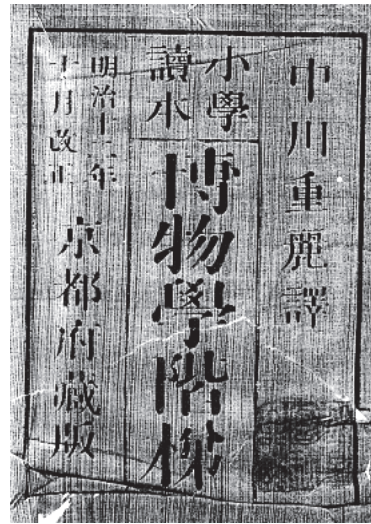 中川重麗譯
小學
讀本
博物學階梯
明治十二年
十月改正
京都府藏版